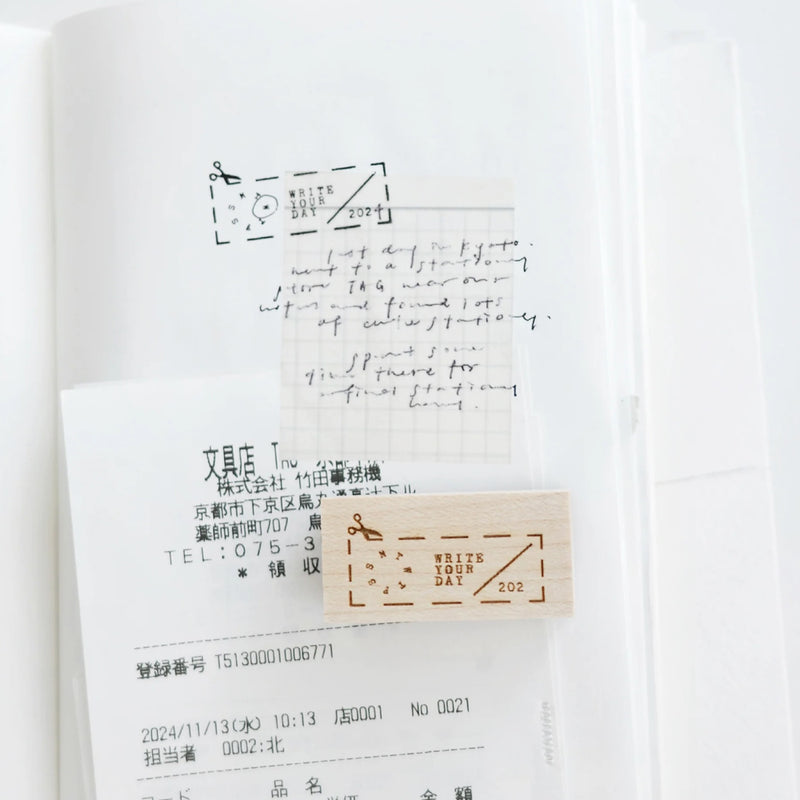 WRITE
YOUR
DAY
2024
last day in kyoto.
went to a stationery
store TAG near our
and found lots
of cute stationery.
spent some
time there for
stationery
文具店
株式会社 竹田事務機
京都市下京区烏丸通高辻下ル
薬師前町707
TEL:075-3
* 領収
WRITE
YOUR
DAY
202
登録番号 T5130001006771
2024/11/13(水) 10:13 店0001 No 0021
担当者 0002:北
コード 品名
金額